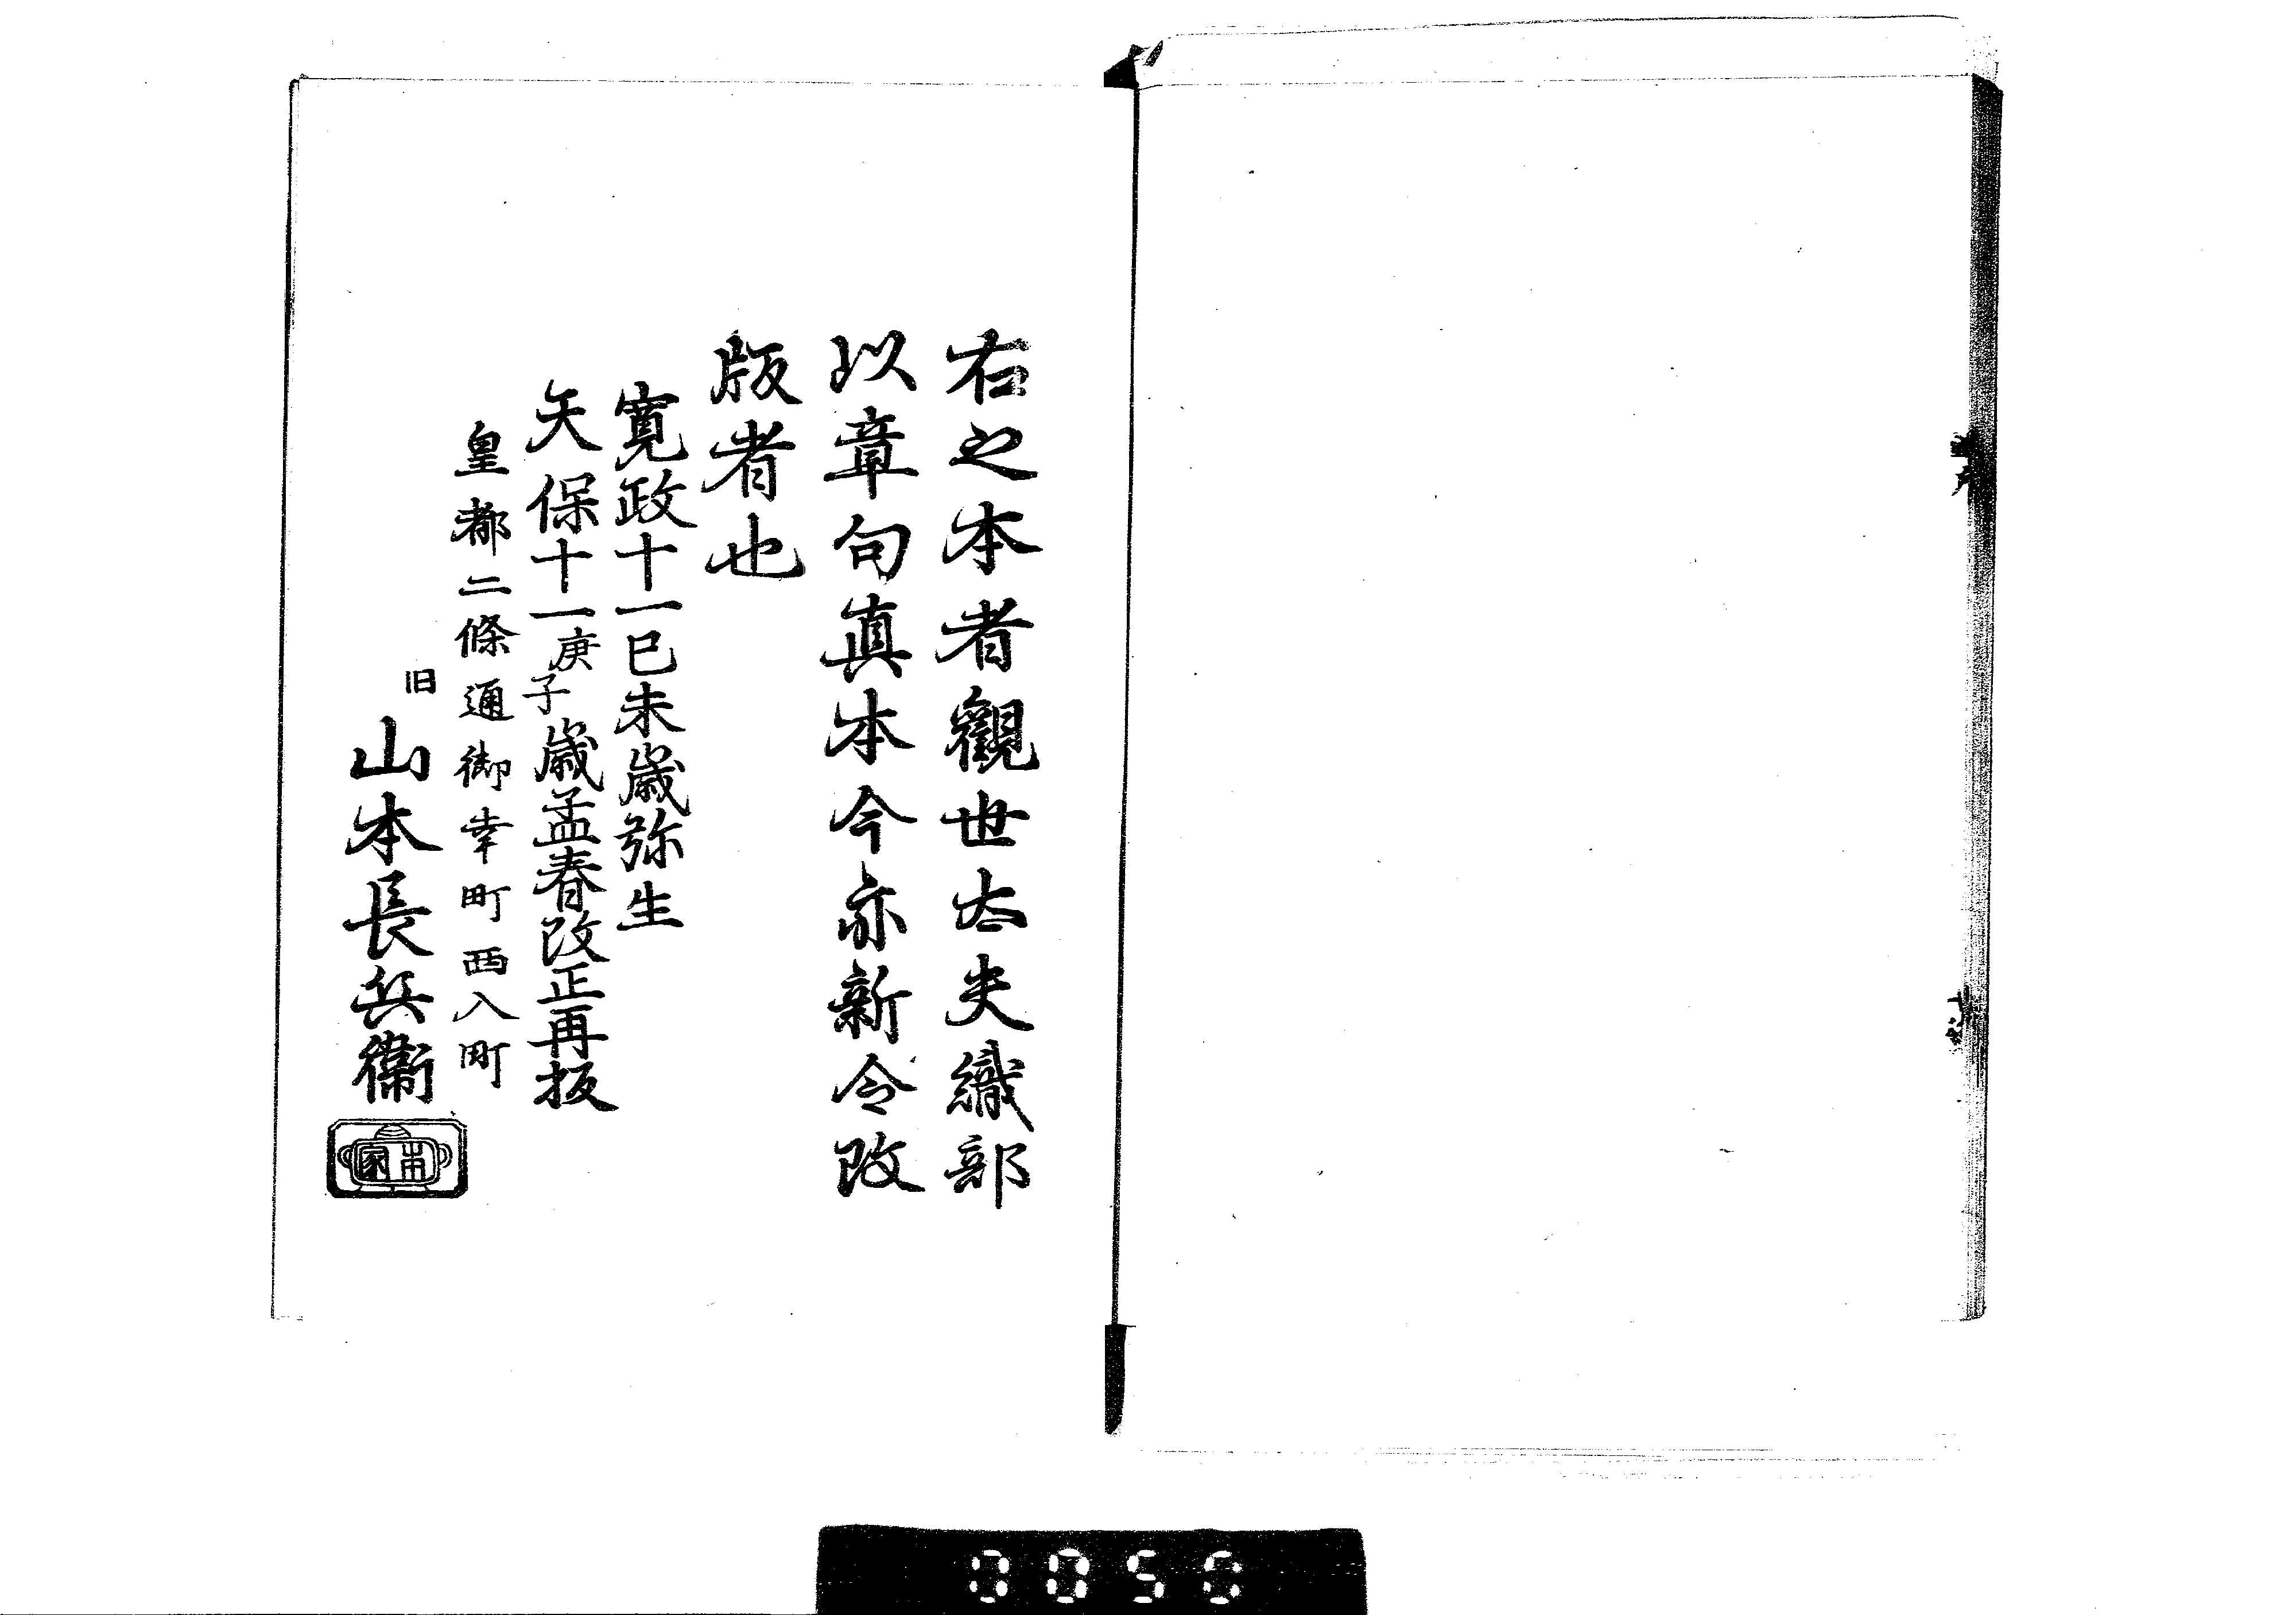 右之本者觀世太夫織部
以章句真本今亦新令改
版者也
寛政十一己未歳弥生
天保十一庚子歳孟春改正再板
皇都二條通御幸町西八町
旧
山本長兵衞
本家
0050